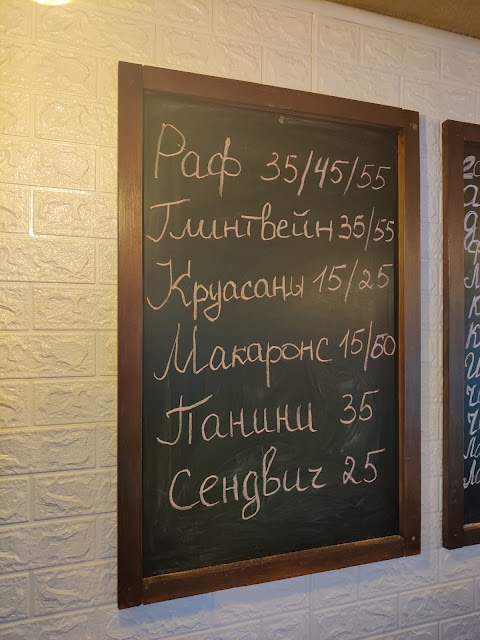 Раф 35/45/55
Глинтвейн 35/55
Круасаны 15/25
Макаронс 15/60
Панини 35
Сендвич 25